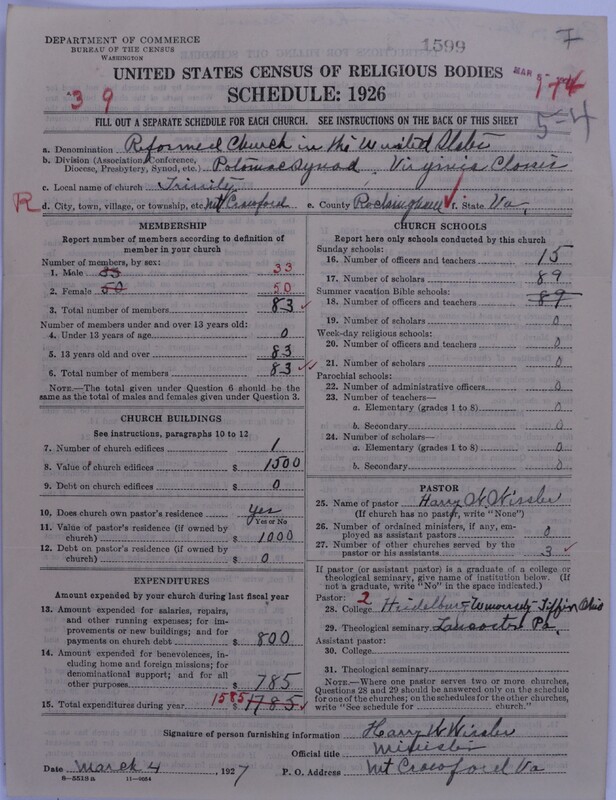 DEPARTMENT OF COMMERCE
BUREAU OF THE CENSUS
WASHINGTON
1599
7
UNITED STATES CENSUS OF RELIGIOUS BODIES
MAR 5
174
SCHEDULE: 1926
3 9
FILL OUT A SEPARATE SCHEDULE FOR EACH CHURCH. SEE INSTRUCTIONS ON THE BACK OF THIS SHEET
5-4
a. Denomination Reformed Church in the United States
b. Division (Association, Conference, Diocese, Presbytery, Synod, etc.) Potomac Synod. Virginia Classis
c. Local name of church Trinity
R d. City, town, village, or township, etc. Mt Crawford e. County Rockingham f. State Va.
MEMBERSHIP
Report number of members according to definition of member in your church
Number of members, by sex:
1. Male 33 33
2. Female 50 50
3. Total number of members 83
Number of members under and over 13 years old:
4. Under 13 years of age 0
5. 13 years old and over 83
6. Total number of members 83
NOTE.—The total given under Question 6 should be the same as the total of males and females given under Question 3.
CHURCH BUILDINGS
See instructions, paragraphs 10 to 12
7. Number of church edifices 1
8. Value of church edifices $ 1500
9. Debt on church edifices $ 0
10. Does church own pastor's residence yes
Yes or No
11. Value of pastor's residence (if owned by church) $ 1000
12. Debt on pastor's residence (if owned by church) $ 0
EXPENDITURES
Amount expended by your church during last fiscal year
13. Amount expended for salaries, repairs, and other running expenses; for improvements or new buildings; and for payments on church debt $ 800
14. Amount expended for benevolences, including home and foreign missions; for denominational support; and for all other purposes $ 785
15. Total expenditures during year 1585 $ 1785
CHURCH SCHOOLS
Report here only schools conducted by this church
Sunday schools:
16. Number of officers and teachers 15
17. Number of scholars 89
Summer vacation Bible schools:
18. Number of officers and teachers 89
19. Number of scholars 0
Week-day religious schools:
20. Number of officers and teachers 0
21. Number of scholars 0
Parochial schools:
22. Number of administrative officers 0
23. Number of teachers—
a. Elementary (grades 1 to 8) 0
b. Secondary 0
24. Number of scholars—
a. Elementary (grades 1 to 8) 0
b. Secondary 0
PASTOR
25. Name of pastor Harry W. Wissler
(If church has no pastor, write "None")
26. Number of ordained ministers, if any, employed as assistant pastors 0
27. Number of other churches served by the pastor or his assistants 3
If pastor (or assistant pastor) is a graduate of a college or theological seminary, give name of institution below. (If not a graduate, write "No" in the space indicated.)
Pastor: 2
28. College Heidelburg University-Tiffin Ohio
29. Theological seminary Lancaster Pa.
Assistant pastor:
30. College
31. Theological seminary
NOTE.—Where one pastor serves two or more churches, Questions 28 and 29 should be answered only on the schedule for one of the churches; on the schedules for the other churches, write "See schedule for church."
Signature of person furnishing information Harry W Wissler
Official title Minister
Date March 4, 1927 P. O. Address Mt Crawford Va
8—5513 a 11—9064